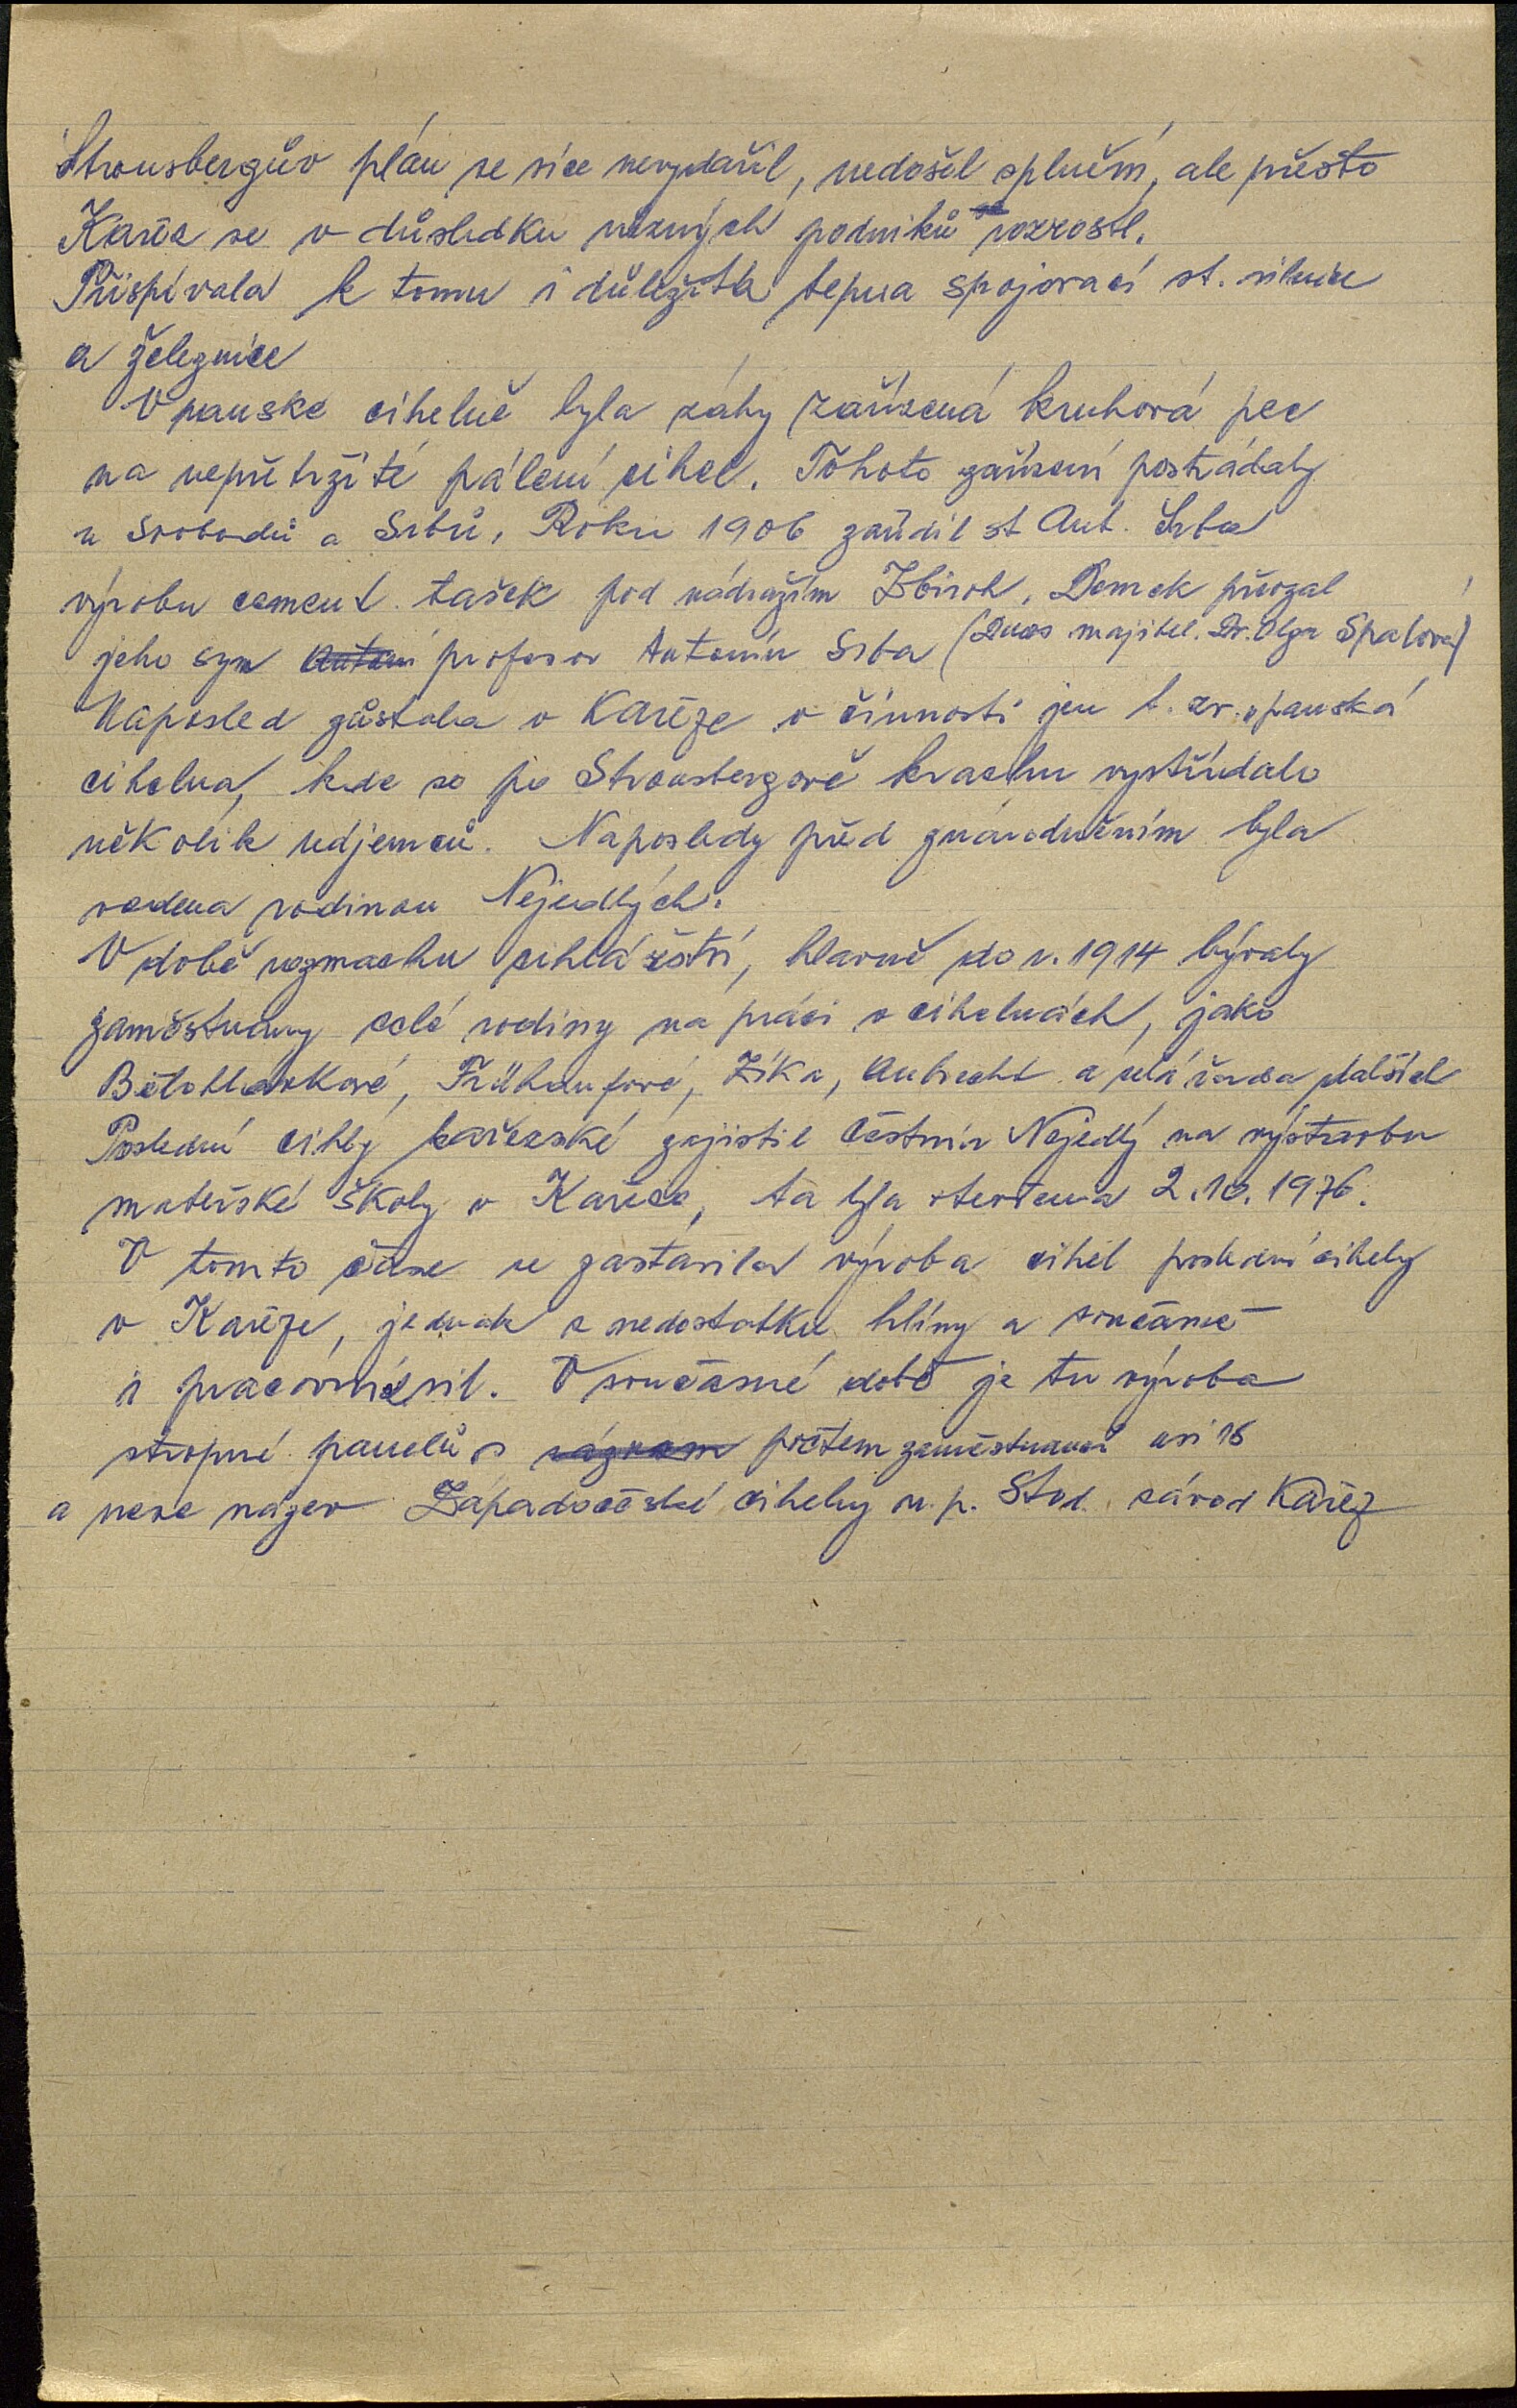 Strousbergův plán se sice nevydařil, nedošel splnění, ale přesto
Kařez se v důsledku různých podniků rozrostl.
Přispívala k tomu i důležitá tepna spojovací st. silnice
a železnice
V panské cihelně byla záhy zařízená kruhová pec
na nepřetržité pálení cihel. Tohoto zařízení postrádaly
u Svobodů a Srbů, Roku 1906 zařídil st Ant. Srba
výrobu cement. tašek pod nádražím Zbiroh, Domek převzal
jeho syn profesor Antonín Srba (Dnes majitel. Dr. Olga Spalová)
Naposled zůstala v Kařeze v činnosti jen t. zv. panská
cihelna, kde se po Strousbergově krachu vystřídalo
několik nájemců. Naposledy před znárodněním byla
vedena rodinou Nejedlých.
V době rozmachu cihlářství, hlavně do r. 1914 bývaly
zaměstnány celé rodiny na práci v cihelnách, jako
Bělohlávkové, Frühaufové, Zíka, Aubrecht a celá řada dalších
Poslední cihly kařezské zajistil Čestmír Nejedlý na výstavbu
mateřské školy v Kařeze, ta byla otevřena 2.10.1976.
V tomto čase se zastavila výroba cihel poslední cihelny
v Kařeze, jednak z nedostatku hlíny a současně
i pracovních sil. V současné době je tu výroba
stropních panelů s počtem zaměstnanců asi 18
a nese název Západočeské cihelny n. p. Stod závod Kařez